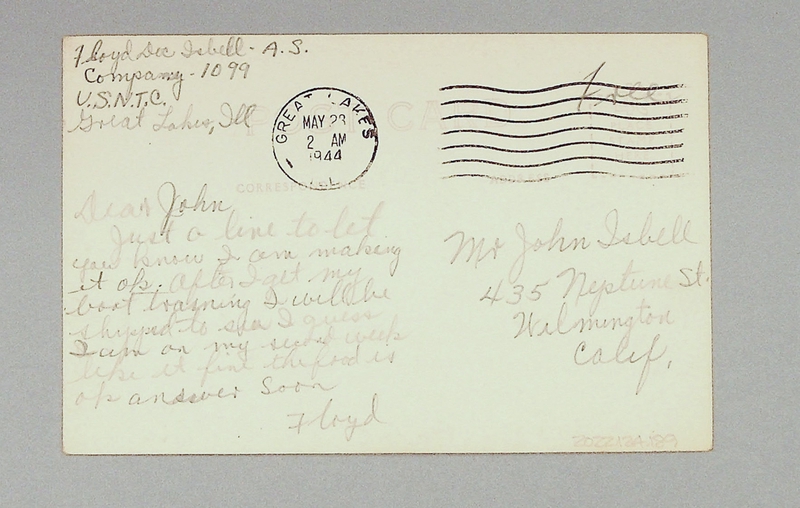 Floyd Dee Isbell - A.S.
Company - 1099
U.S.N.T.C.
Great Lakes, Ill
GREAT LAKES
MAY 23
2 AM
1944
ILL.
Free
CORRESPONDENCE
Dear John
Just a line to let
you know I am making
it ok. After I get my
boot training I will be
shipped to sea I guess
I am on my week
like it fine the food is
ok answer Soon
Floyd
Mr John Isbell
435 Neptune St.
Wilmington
Calif.